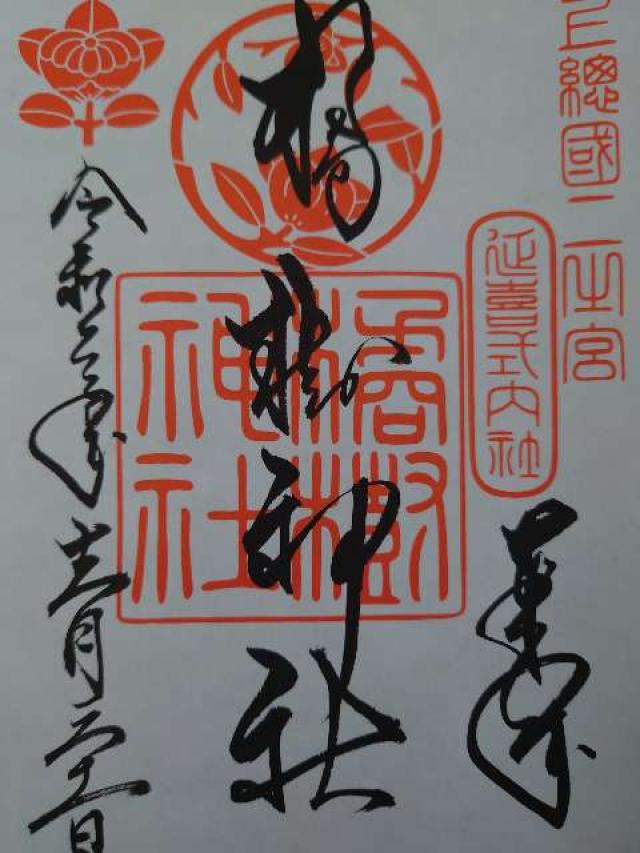 上總國二之宮
延喜式内社
奉拝
橘樹神社
橘樹
神社
令和二年十二月二十一日